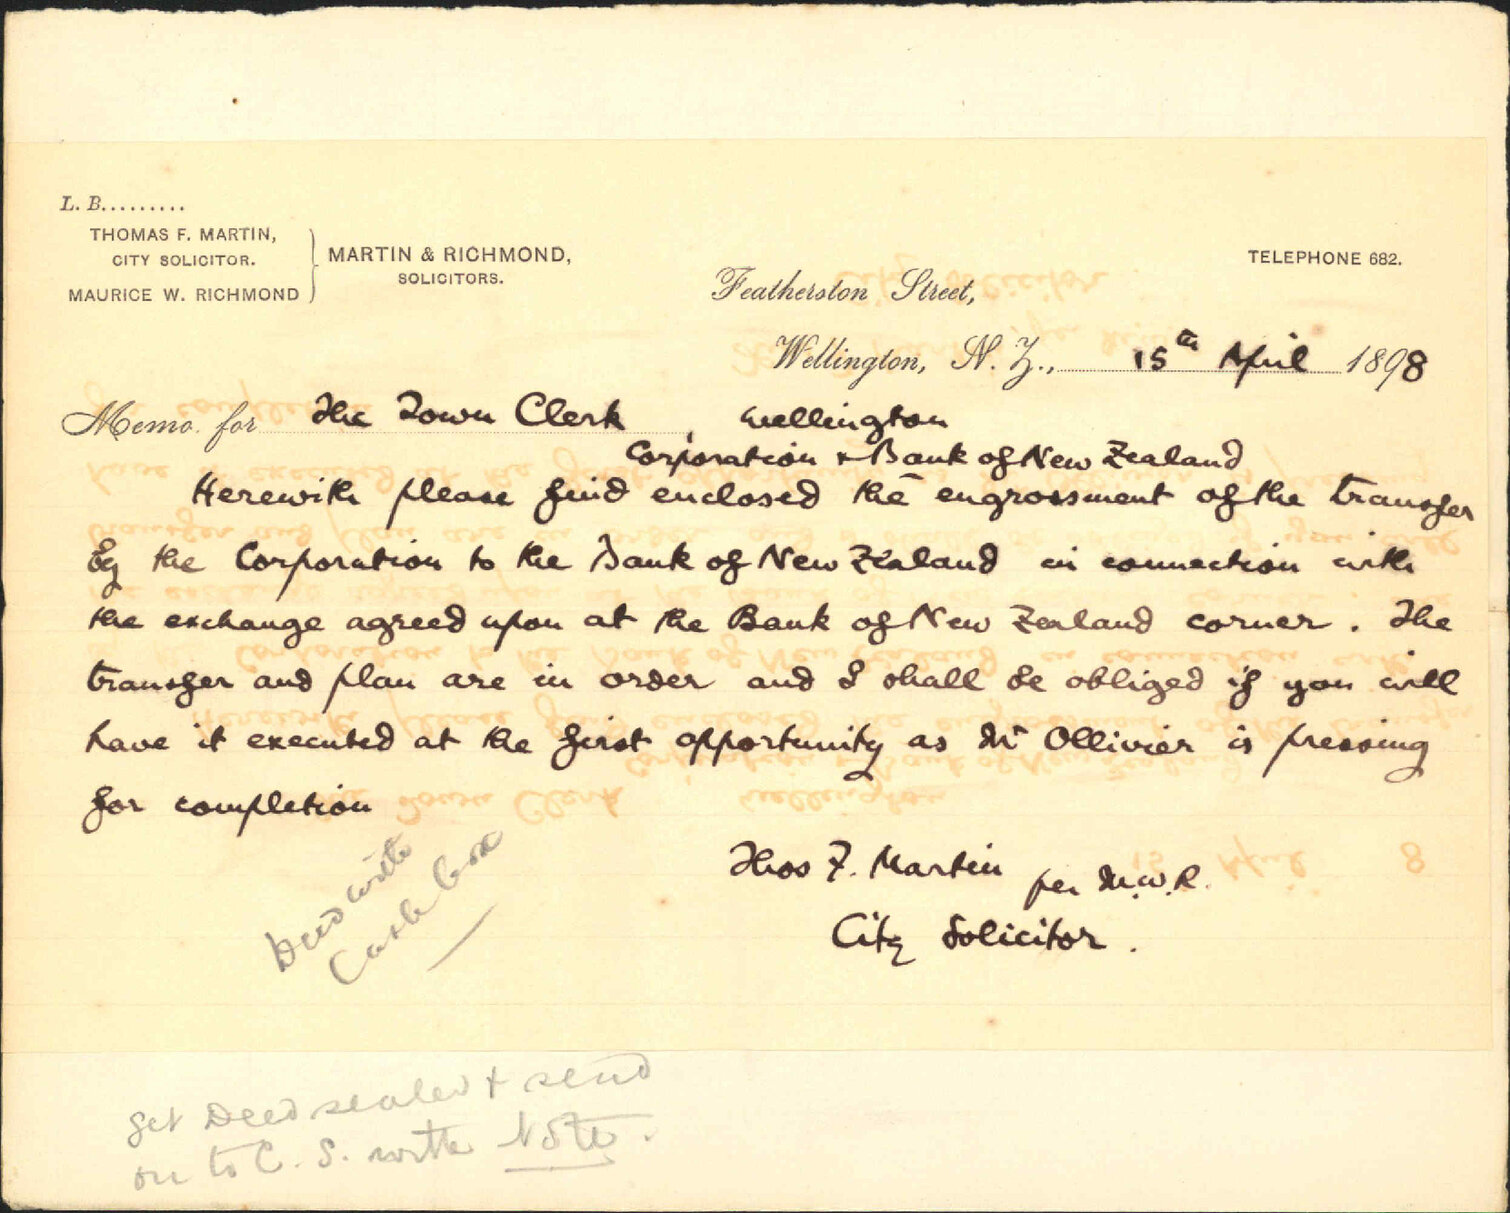 L. B.........
THOMAS F. MARTIN,
CITY SOLICITOR.
MAURICE W. RICHMOND
MARTIN & RICHMOND,
SOLICITORS.
TELEPHONE 682.
Featherston Street,
Wellington, N. Z., 15th April 1898
Memo. for The Town Clerk, Wellington
Corporation & Bank of New Zealand
Herewith please find enclosed the engrossment of the transfer
by the Corporation to the Bank of New Zealand in connection with
the exchange agreed upon at the Bank of New Zealand corner. The
transfer and plan are in order and I shall be obliged if you will
have it executed at the first opportunity as Mr Ollivier is pressing
for completion
Thos F. Martin per M.W.R.
City Solicitor.
Deed with
Cash box
Get Deed sealed & send
on to C. S. with Note.